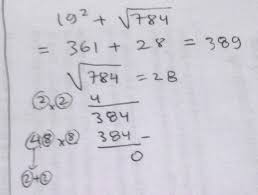 19² + √784
= 361 + 28 = 389
√784 = 28
2 x 2 4
384
48 x 8 384 -
0
2+2